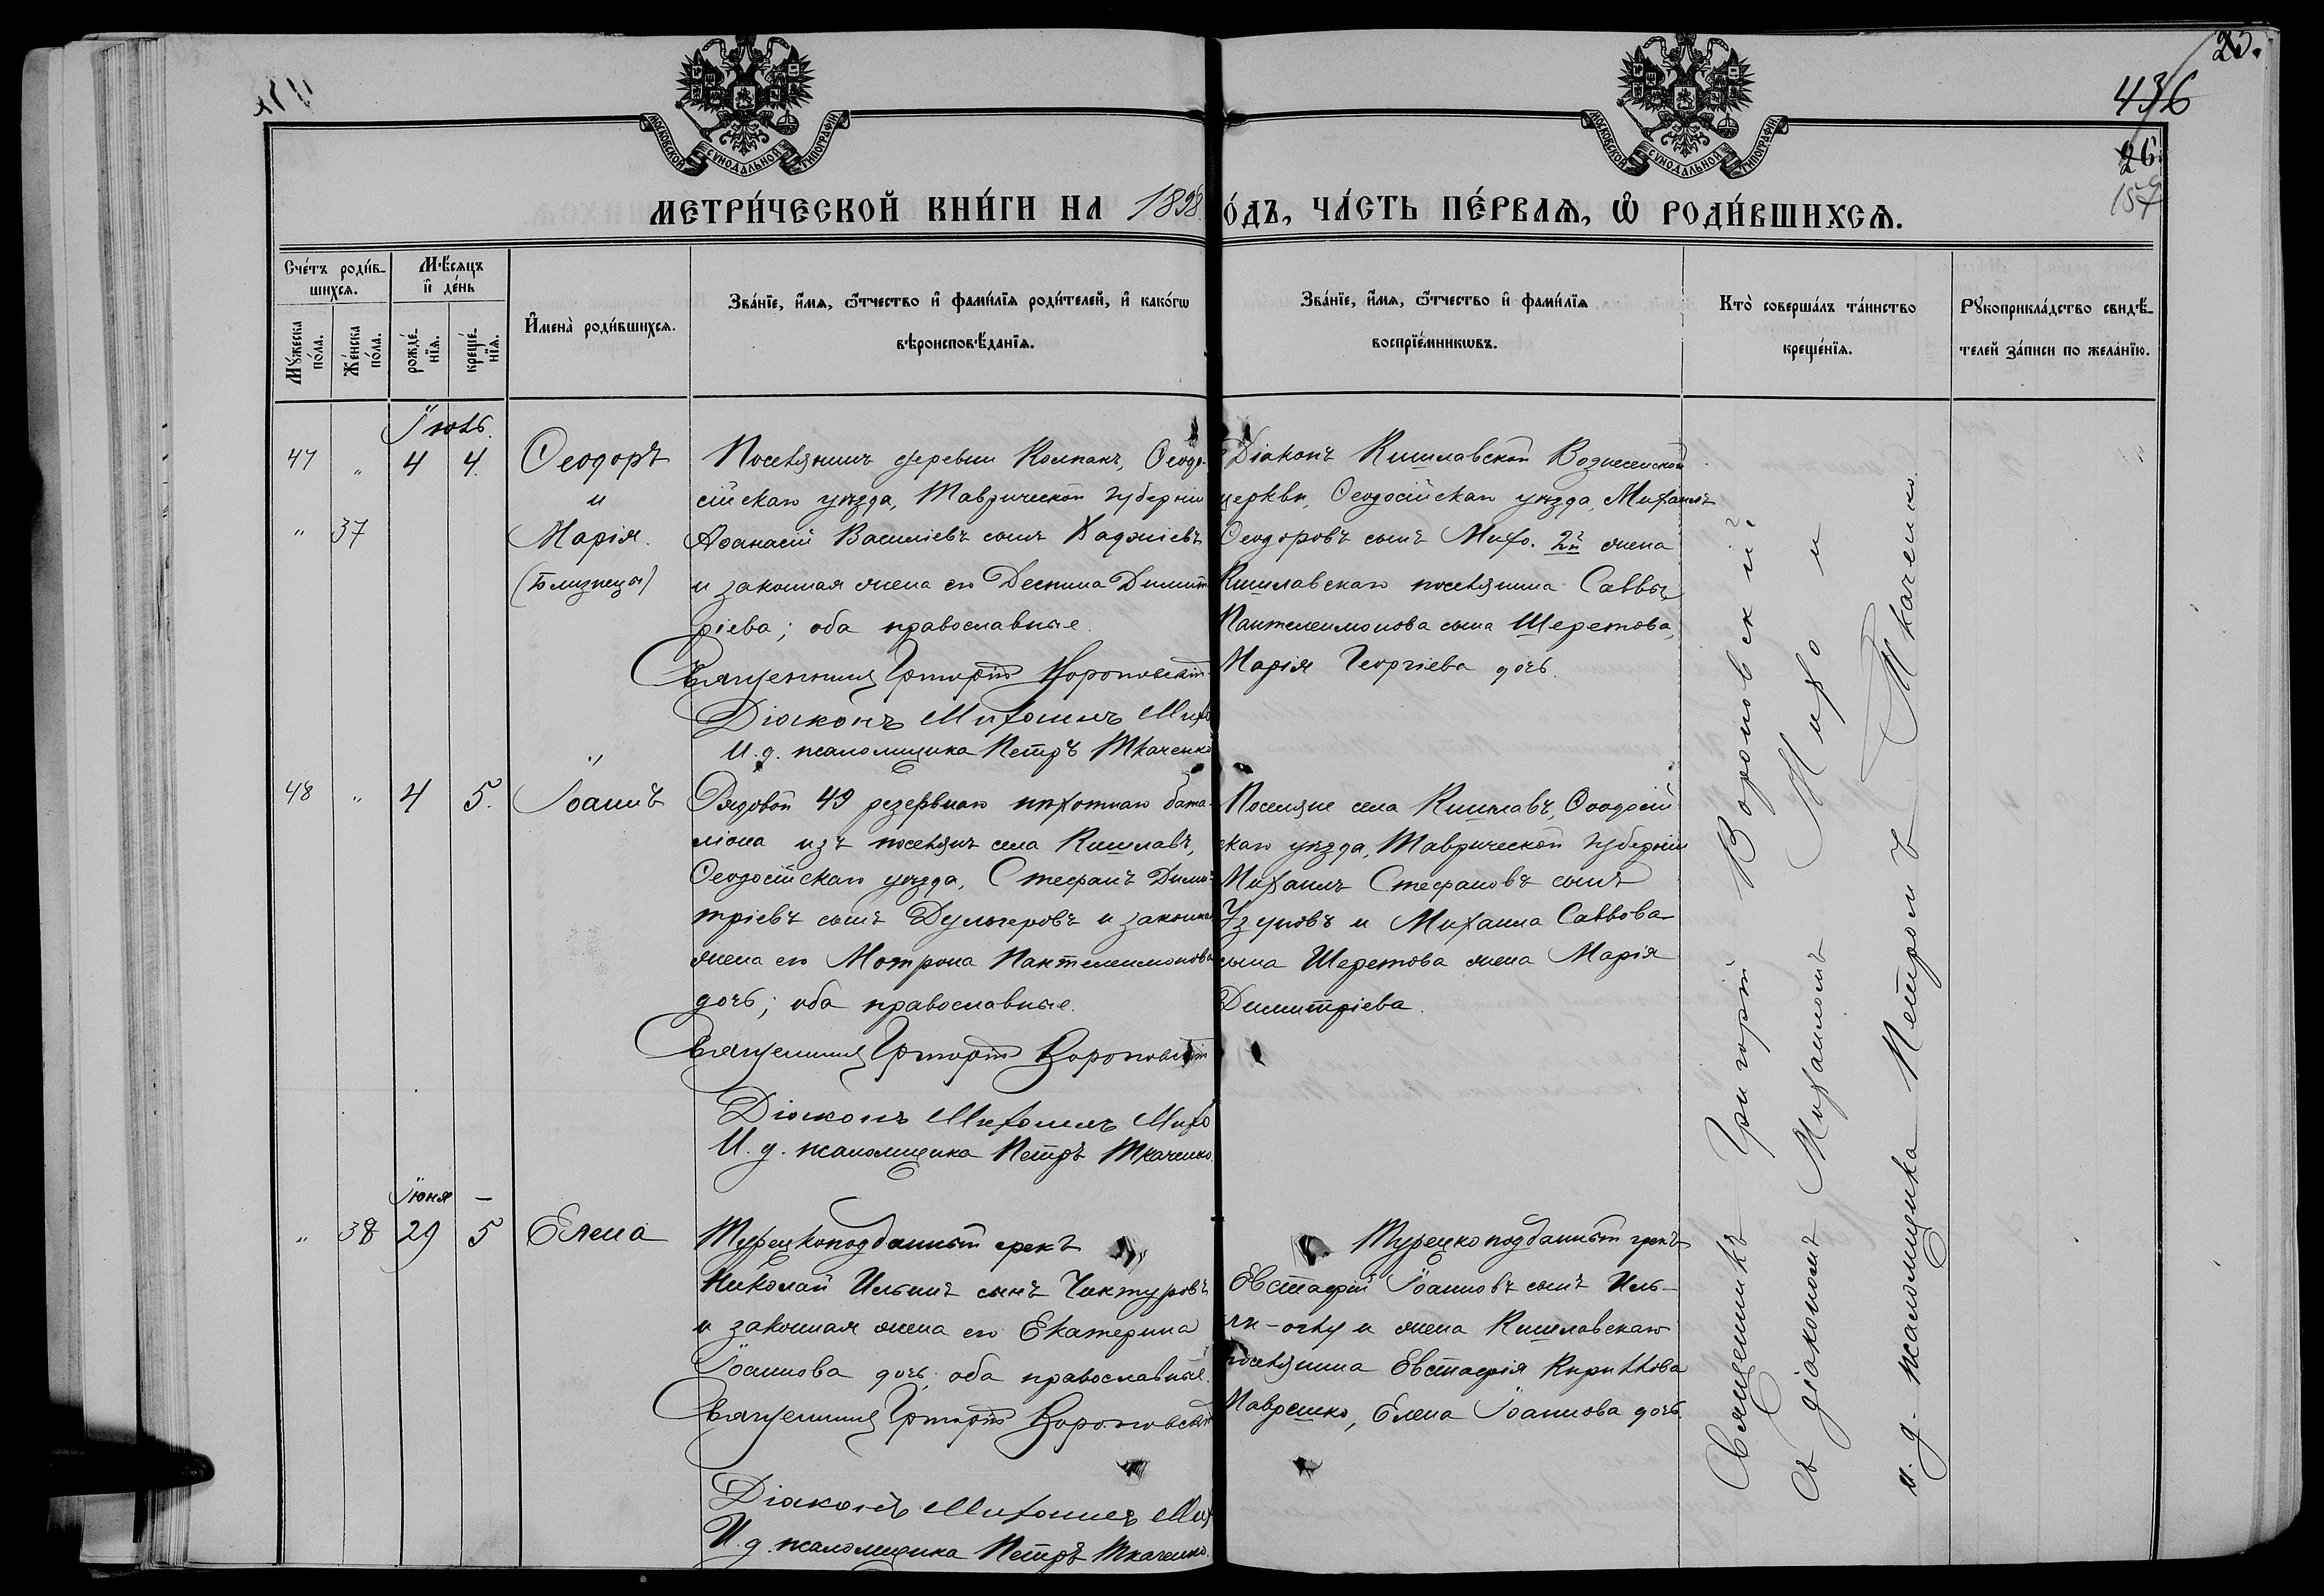 25.
436
26
157
МОСКОВСКОЙ СУНОДАЛЬНОЙ ТИПОГРАФІИ
МОСКОВСКОЙ СУНОДАЛЬНОЙ ТИПОГРАФІИ
МЕТРИ́ЧЕСКОЙ КНИ́ГИ НА 1898 О́ДЪ, ЧА́СТЬ ПЕ́РВАѦ, Ѡ҆ РОДИ́ВШИХСѦ.
Сче́тъ роди́в-
шихся.
Мꙋ́жеска
по́ла.
Же́нска
по́ла.
Мѣ́сяцъ
и҆ де́нь
рожде́-
нїя.
креще́-
нїя.
И҆мена̀ роди́вшихся.
Зва́нїе, и҆́мя, ѻ҆́тчество и҆ фами́лїя роди́телей, и҆ како́гѡ
вѣроисповѣ́данїя.
Зва́нїе, и҆́мя, ѻ҆́тчество и҆ фами́лїя
воспрїе́мникѡвъ.
Кто̀ соверша́лъ та́инство
креще́нїя.
Рꙋкоприкла́дство свидѣ́-
телей за́писи по жела́нїю.
Іюль.
47 " 4 4. Ѳеодоръ
и
" 37 Марія.
(близнецы)
Поселянинъ деревни Колпакъ, Ѳеодо-
сійскаго уѣзда, Таврической губерніи
Аѳанасій Василіевъ сынъ Хаджіевъ
и законная жена его Деспина Димит
ріева; оба православные.
Священникъ Григорій Вороповскій
Діаконъ Михаилъ Михо
И. д. псаломщика Петръ Ткаченко
Діаконъ Кишлавской Вознесенской
церкви, Ѳеодосійскаго уѣзда, Михаилъ
Ѳеодоровъ сынъ Михо. 2й жена
Кишлавскаго поселянина Саввы
Пантелеимонова сына Шеретова,
Марія Георгіева дочь.
48 " 4 5. Іоаннъ
Рядовой 49 резервнаго пѣхотнаго бата-
ліона изъ поселянъ села Кишлавъ,
Ѳеодосійскаго уѣзда, Стефанъ Дими-
тріевъ сынъ Дульгеровъ и законная
жена его Мотрона Пантелеимонова
дочь; оба православные.
Священникъ Григорій Вороповскій
Діаконъ Михаилъ Михо
И. д. псаломщика Петръ Ткаченко.
Поселяне села Кишлавъ, Ѳеодосій
скаго уѣзда, Таврической губерніи
Михаилъ Стефановъ сынъ
Узуновъ и Михаила Саввова
сына Шеретова жена Марія
Димитріева.
Іюня —
" 38 29 5 Елена
Турецкоподданный грекъ
Николай Ильинъ сынъ Чиктуровъ
и законная жена его Екатерина
Іоаннова дочь; оба православные.
Священникъ Григорій Вороповскій
Діаконъ Михаилъ Мих
И. д. псаломщика Петръ Ткаченко.
Турецкоподданный грекъ
Евстафій Іоанновъ сынъ Иль-
и жена Кишлавскаго
поселянина Евстафія Кириллова
Маврешко, Елена Іоаннова дочь.
Священникъ Григорій Вороповскій
съ діакономъ Михаиломъ Михо и
и. д. псаломщика Петромъ Ткаченко.